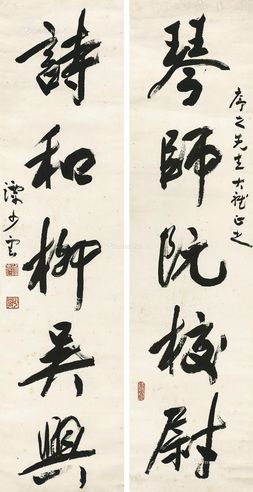 琴師阮校尉
詩和柳吳興
序之先生大雅正之
譚少雲